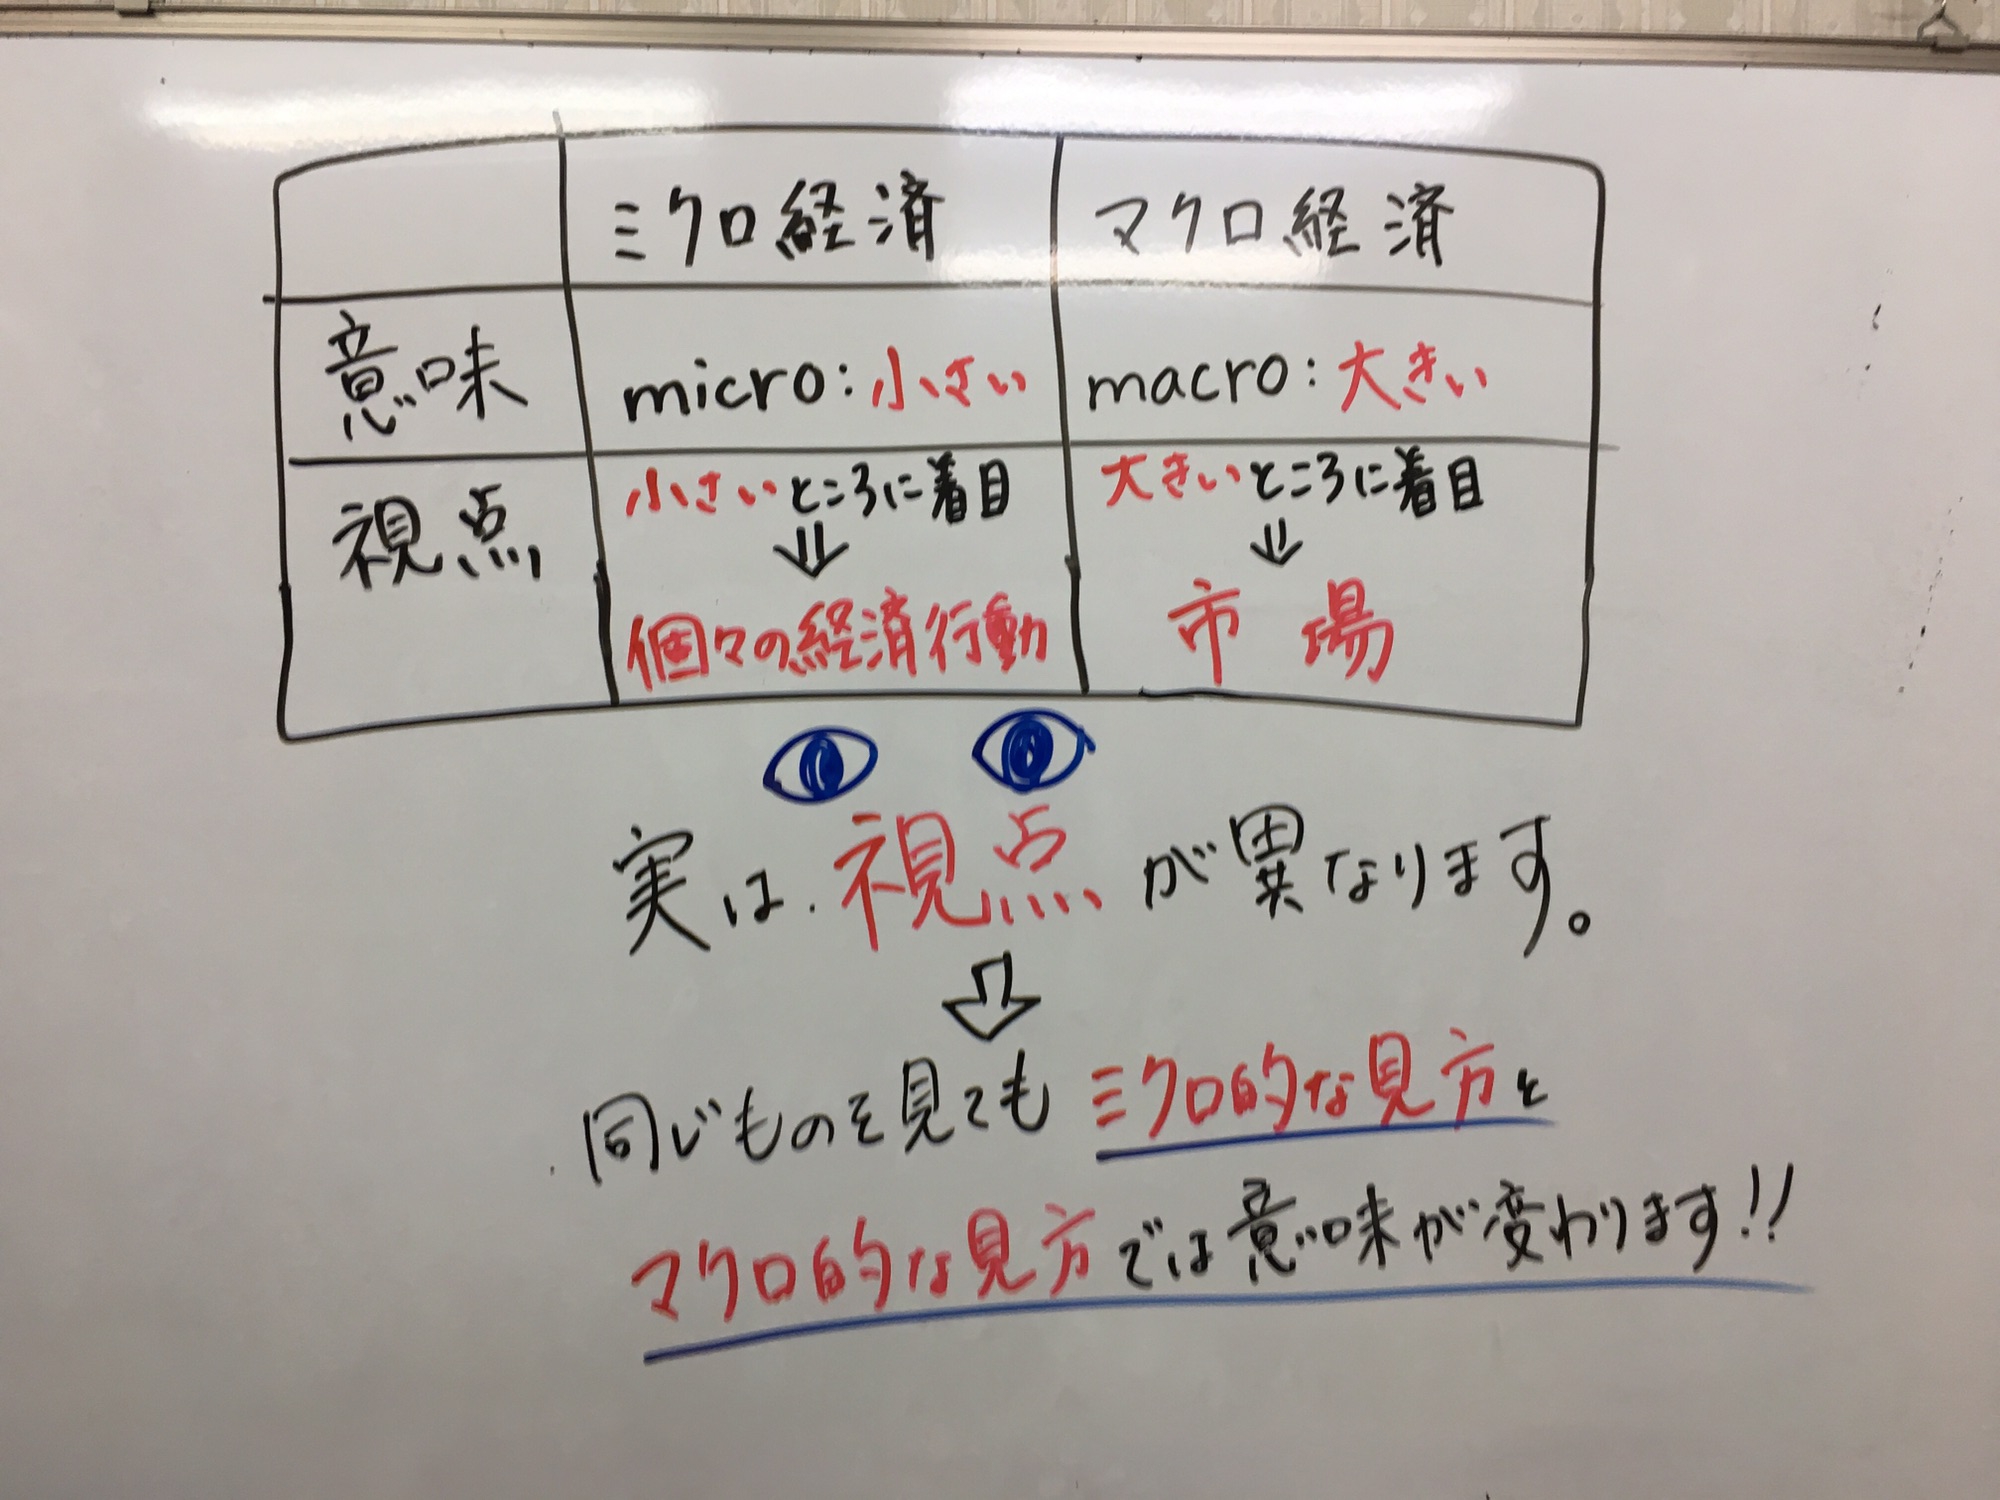 ミクロ経済 マクロ経済
意味 micro:小さい macro:大きい
視点 小さいところに着目 大きいところに着目
⇓ ⇓
個々の経済行動 市場
実は.視点が異なります。
⇓
同じものを見てもミクロ的な見方と
マクロ的な見方では意味が変わります!!